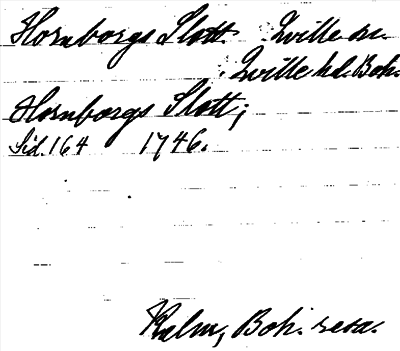 Hornborgs Slott. Qville sn.
Qville hd. Boh.
Hornborgs Slott;
Sid. 164 1746.
Kalm, Boh. resa.